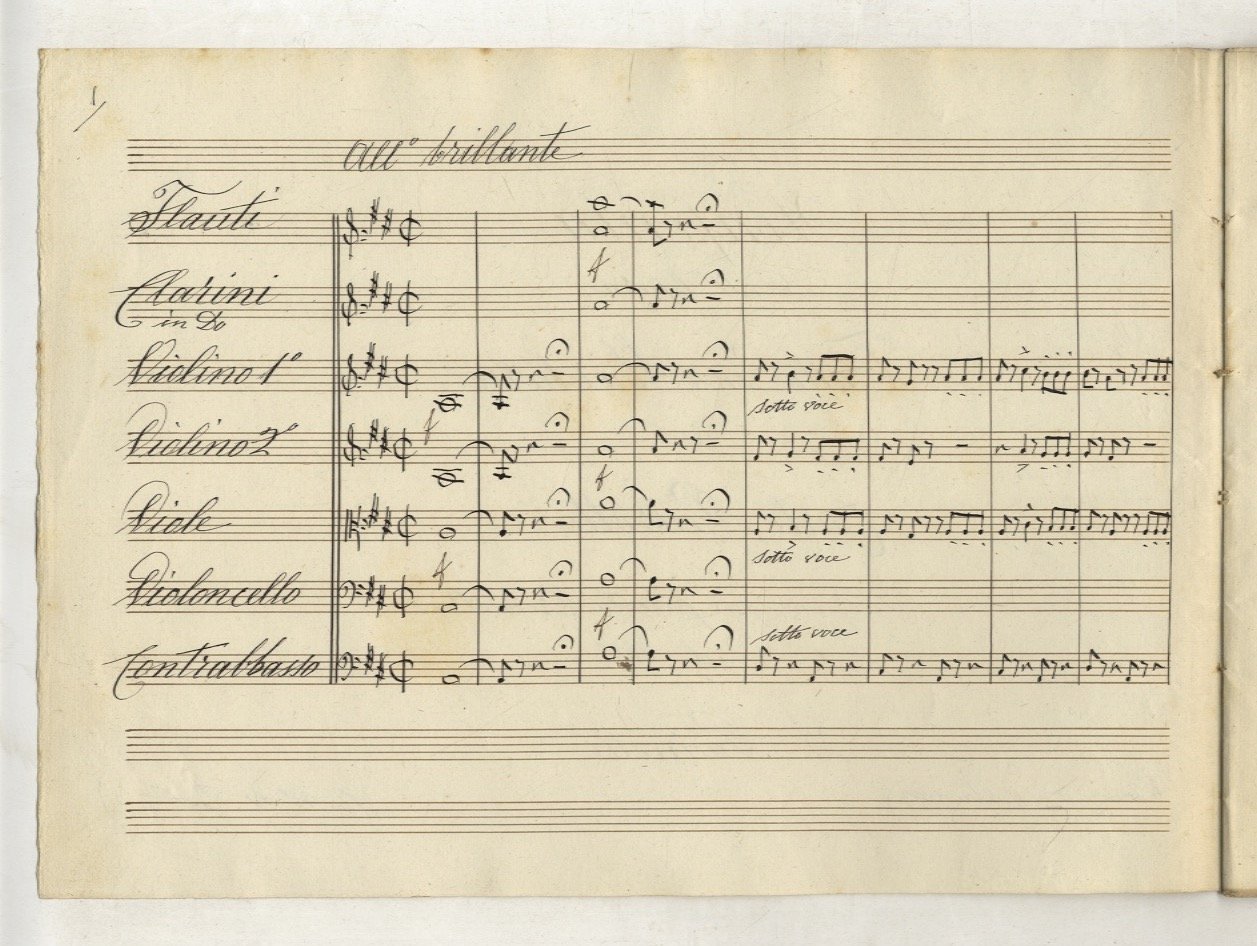 1/
All° brillante
Flauti
f
Clarini
in Do
Violino 1°
sotto voce
f
Violino 2°
f
Viole
sotto voce
f
Violoncello
f
sotto voce
Contrabbasso